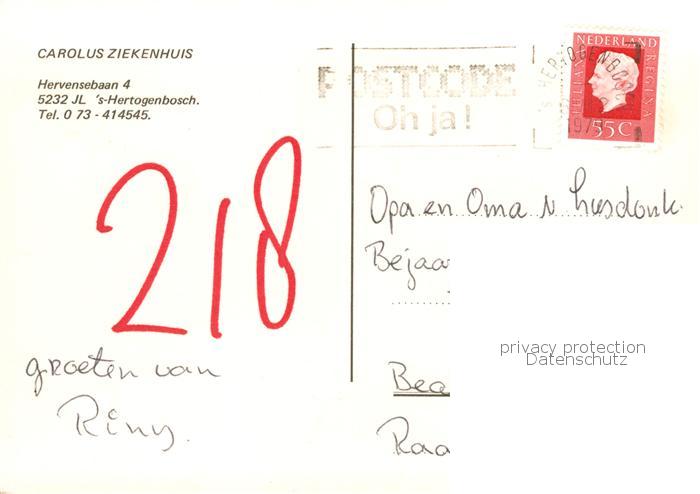 CAROLUS ZIEKENHUIS
Hervensebaan 4
5232 JL 's-Hertogenbosch.
Tel. 0 73 - 414545.
POSTCODE
Oh ja!
NEDERLAND
JULIANA REGINA
55C
218
groeten van
Riny.
Opa en Oma
Bejaa
Bea
Raa
privacy protection
Datenschutz